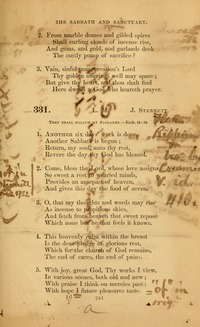 THE SABBATH AND SANCTUARY.
2. From marble domes and gilded spires
Shall curling clouds of incense rise,
And gems, and gold, and garlands deck
The costly pomp of sacrifice?
3. Vain, sinful man! creation's Lord
Thy golden offerings well may spare;
But give thy heart, and thou shalt find
Here dwells a God who heareth prayer.
331. J. STENNETT.
1. ANOTHER six days' work is done,
Another Sabbath is begun;
Return, my soul, unto thy rest,
Revere the day thy God has blessed.
2. Come, bless the Lord, whose love assigns
So sweet a rest to wearied minds,
Provides an antepast of heaven,
And gives this day the food of seven.
3. O, that my thoughts and words may rise
As incense to propitious skies,
And fetch from heaven that sweet repose
Which none but he that feels it knows.
4. This heavenly calm within the breast
Is the dear pledge of glorious rest,
Which for the church of God remains,
The end of cares, the end of pains.
5. With joy, great God, Thy works I view,
In various scenes, both old and new;
With praise I think on mercies past;
With hope I future pleasures taste.
241
a